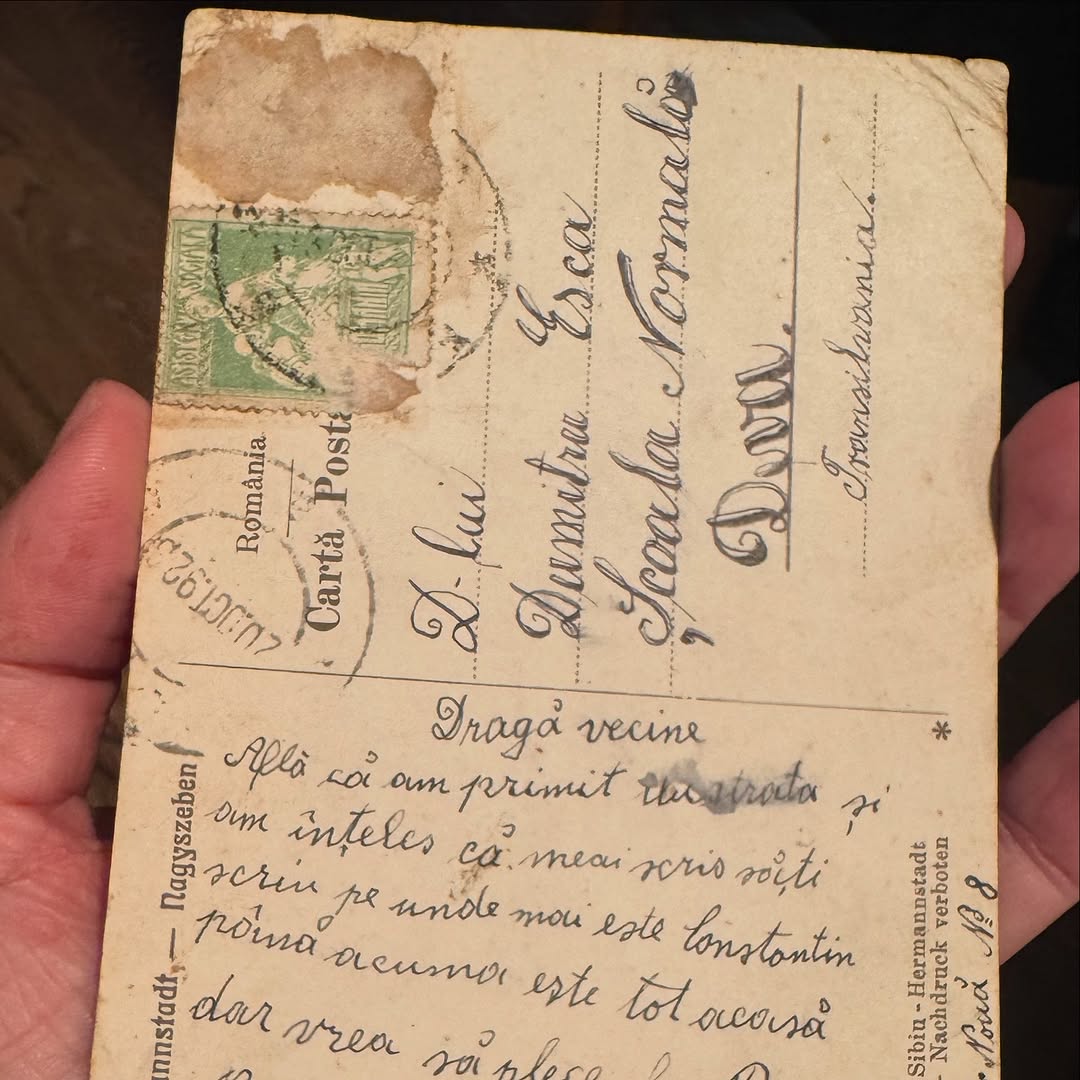 ASISTENȚA SOCIALA
România
Cartă Posta
20 OCT. 92
D-lui
Dumitru Esca
Școala Normală
Deva.
Transilvania.
Dragă vecine
Află că am primit ilustrata și
am înțeles că meai scris săți
scriu pe unde mai este Constantin
pâină acuma este tot acasă
dar vrea să plece
nnstadt. — Nagyszeben
Sibiu - Hermannstadt
Nachdruck verboten
Nouă № 8